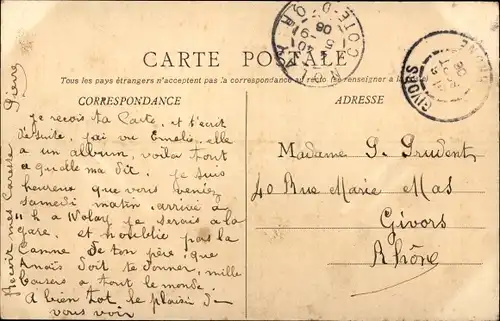 CARTE POSTALE
Tous les pays étrangers n'acceptent pas la correspondance au recto (se renseigner à la
CORRESPONDANCE
ADRESSE
Je recois ta Carte, et t'écrit
de suite, j'ai vu Emelie, elle
a un album, voila tout
a quelle ma dit. Je suis
heureux que vous veniez
samedi matin, arrivé à
11 h a Nolay je serais a la
gare. et n'oublie pas la
Canne de ton père, que
Anaïs doit te donner, mille
baisers a tout le monde.
A bien tot, le plaisir de
vous voir
Recevir mes Caresse Pierre
Madame P. Prudent
40 Rue Marie Mas
Givors
Rhône
COTE-D'OR
GIVORS
RHONE